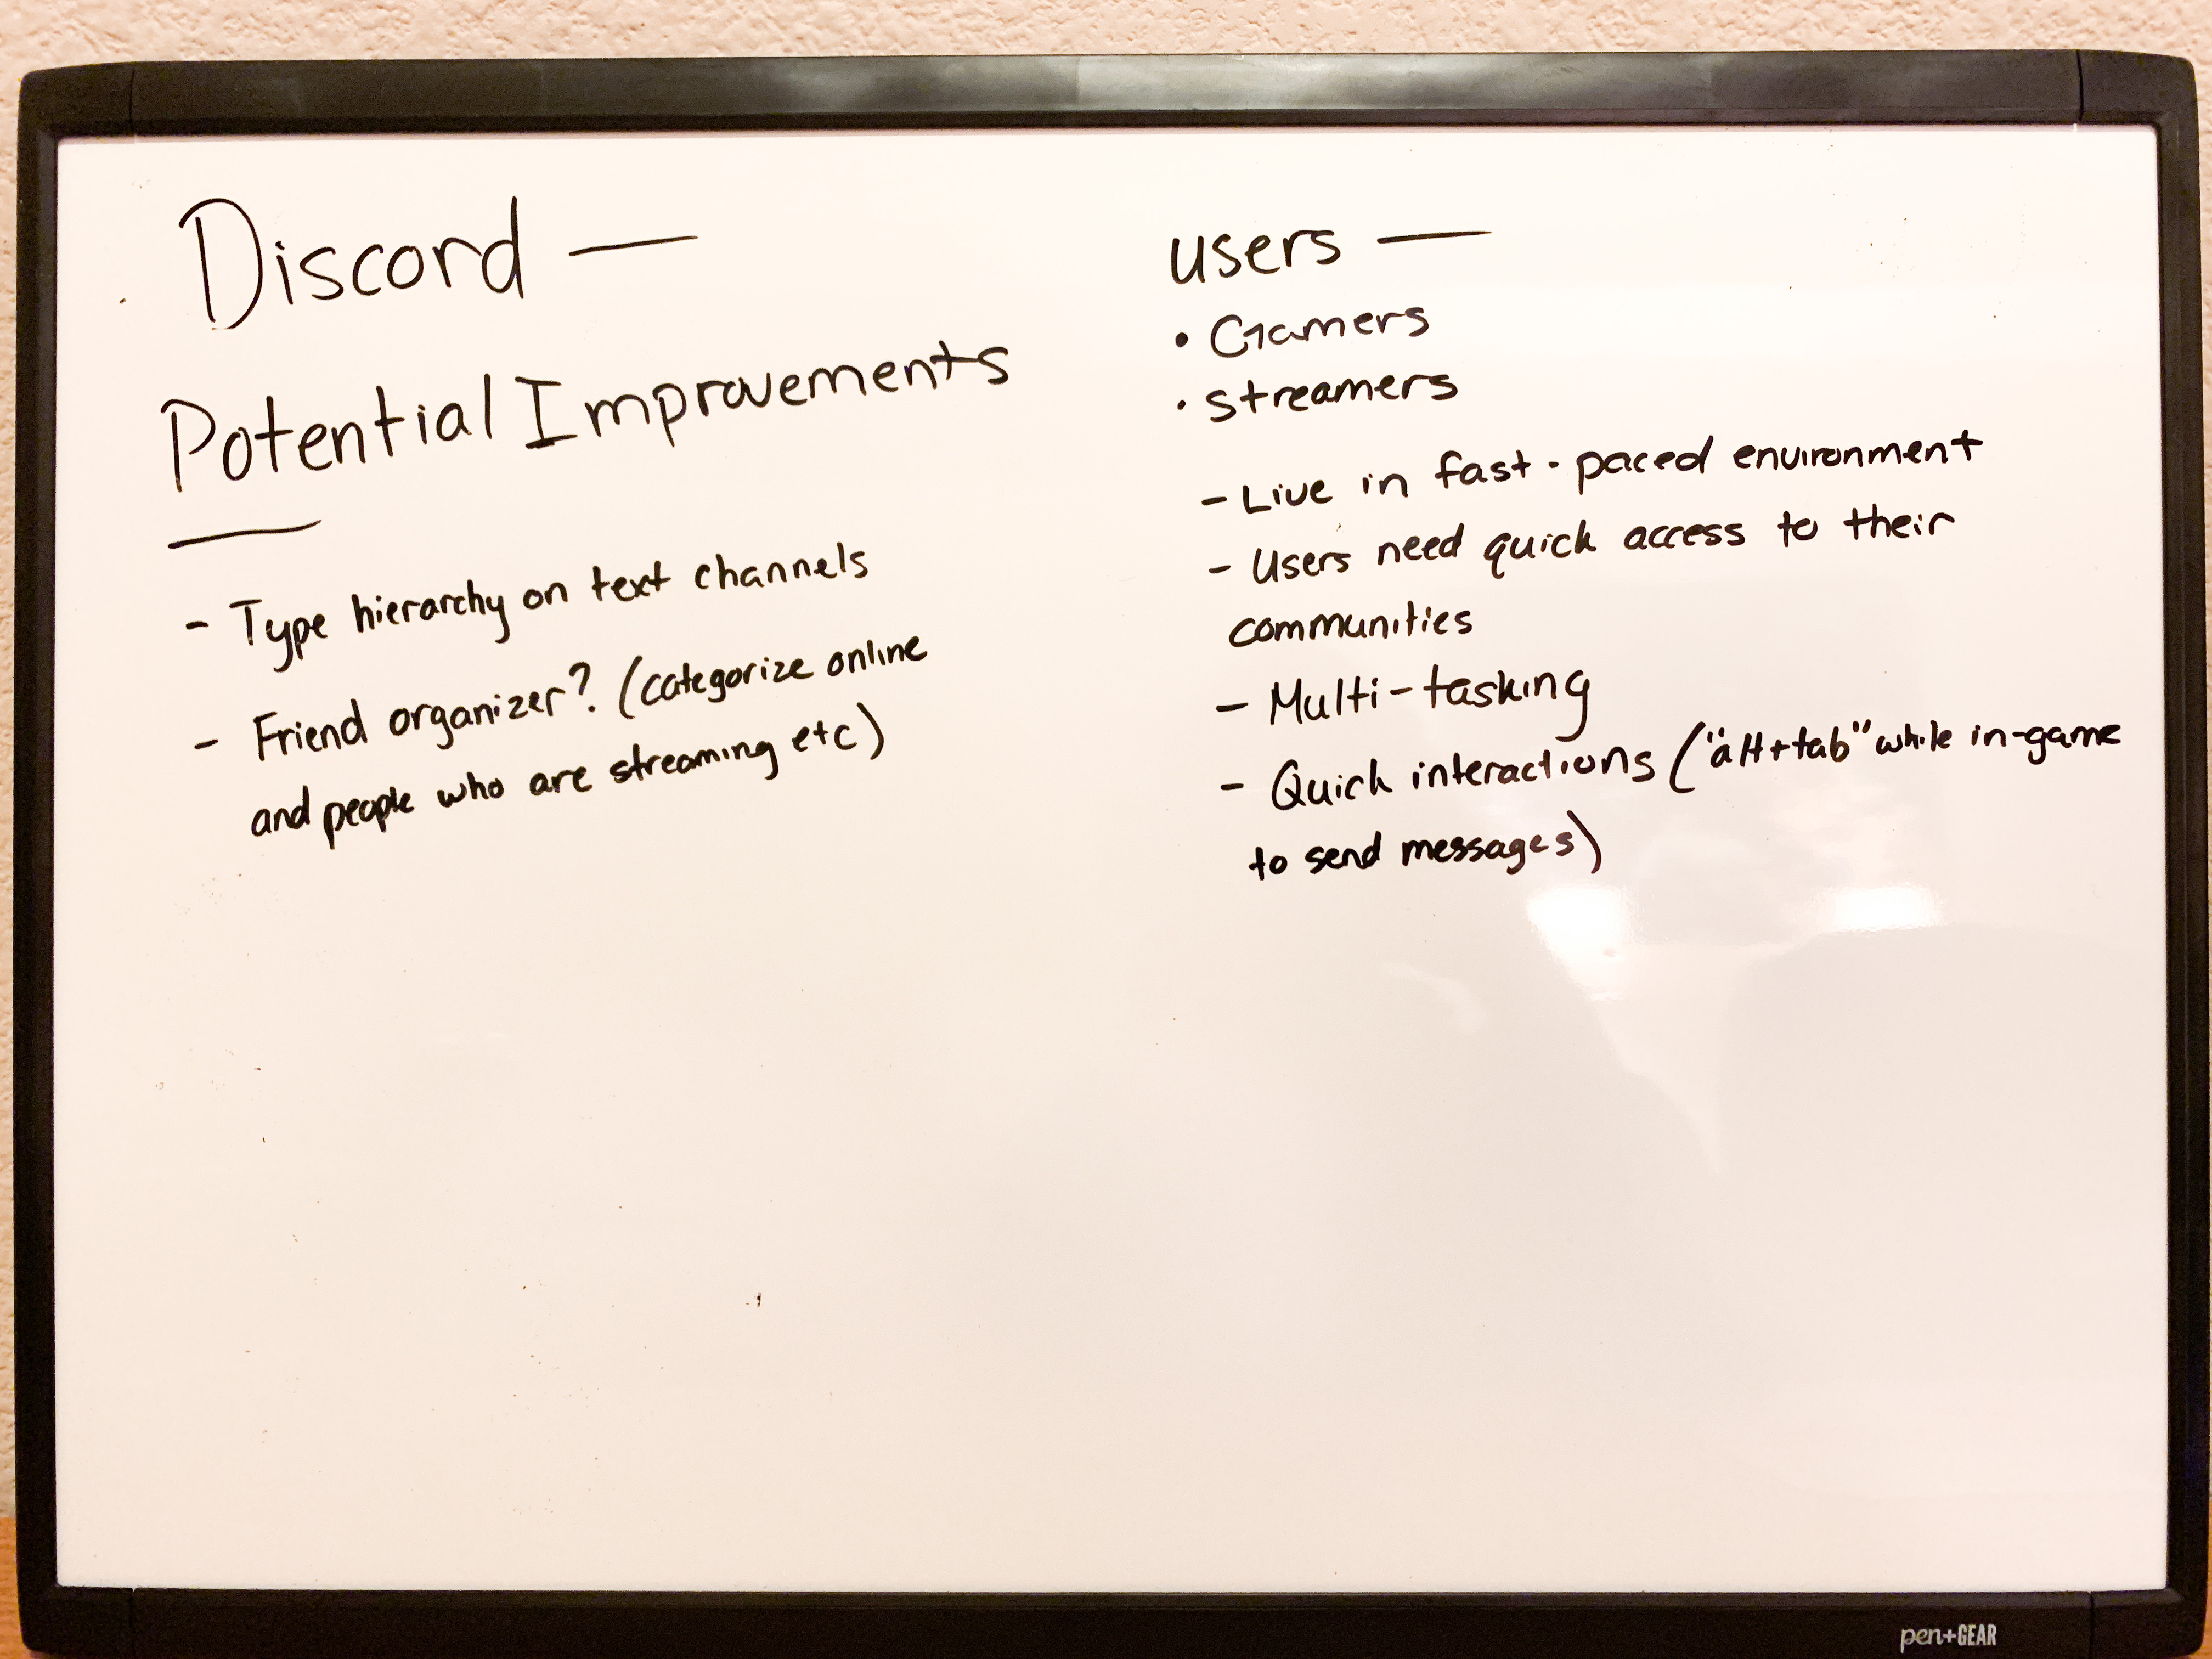 Discord —
Potential Improvements
—
- Type hierarchy on text channels
- Friend organizer? (categorize online
and people who are streaming etc)
users —
• Gamers
• streamers
- Live in fast-paced environment
- Users need quick access to their
communities
- Multi-tasking
- Quick interactions ("alt+tab" while in-game
to send messages)
pen+GEAR